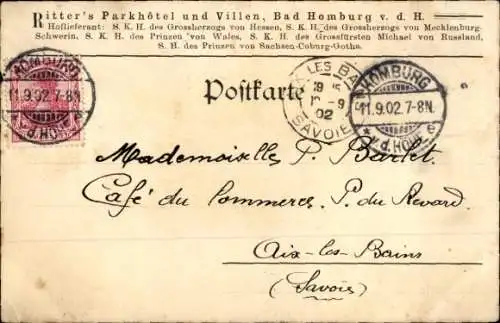 Ritter's Parkhôtel und Villen, Bad Homburg v. d. H.
Hoflieferant: S. K. H. des Grossherzogs von Hessen, S. K. H. des Grossherzogs von Mecklenburg-
Schwerin, S. K. H. des Prinzen von Wales, S. K. H. des Grossfürsten Michael von Russland,
S. H. des Prinzen von Sachsen-Coburg-Gotha.
HOMBURG
11.9.02.7-8N.
v.d.HÖHE
Postkarte
LES BA
SAVOIE
02
HOMBURG
11.9.02.7-8N.
* v.d.HÖHE e
Mademoiselles P. Barlet
Café du Commerce. P. du Revard
Aix-les-Bains
(Savoie)